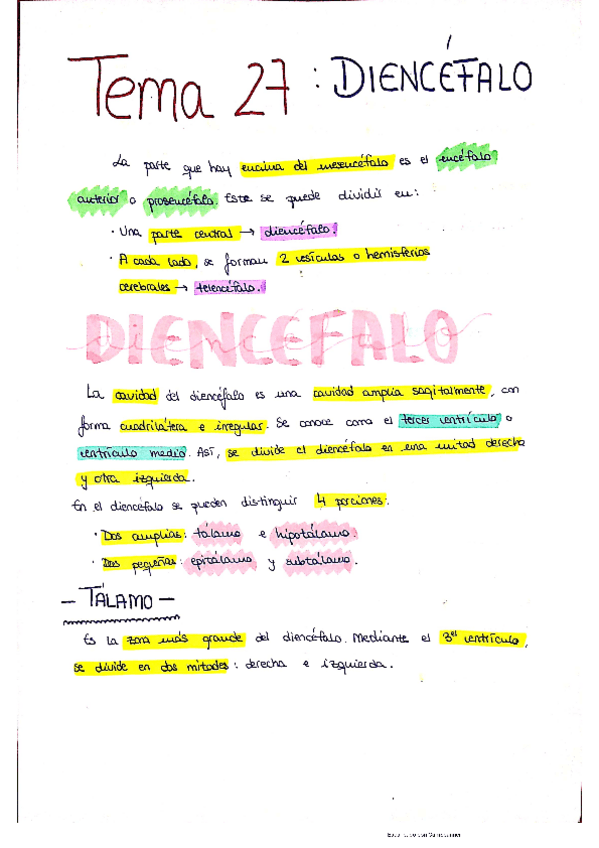 Tema 27: DIENCÉFALO
La parte que hay encima del mesencéfalo es el encéfalo
anterior o prosencéfalo. Este se puede dividir en:
· Una parte central → diencéfalo.
· A cada lado, se forman 2 vesículas o hemisferios
cerebrales → telencéfalo.
DIENCEFALO
diencéfalo
La cavidad del diencéfalo es una cavidad amplia sagitalmente, con
forma cuadrilátera e irregular. Se conoce como el tercer ventrículo o
ventrículo medio. Así, se divide el diencéfalo en una mitad derecha
y otra izquierda.
En el diencéfalo se pueden distinguir 4 porciones:
· Dos amplias: tálamo e hipotálamo.
· Dos pequeñas: epitálamo y subtálamo.
- TÁLAMO -
Es la zona más grande del diencéfalo. Mediante el 3er ventrículo,
se divide en dos mitades: derecha e izquierda.